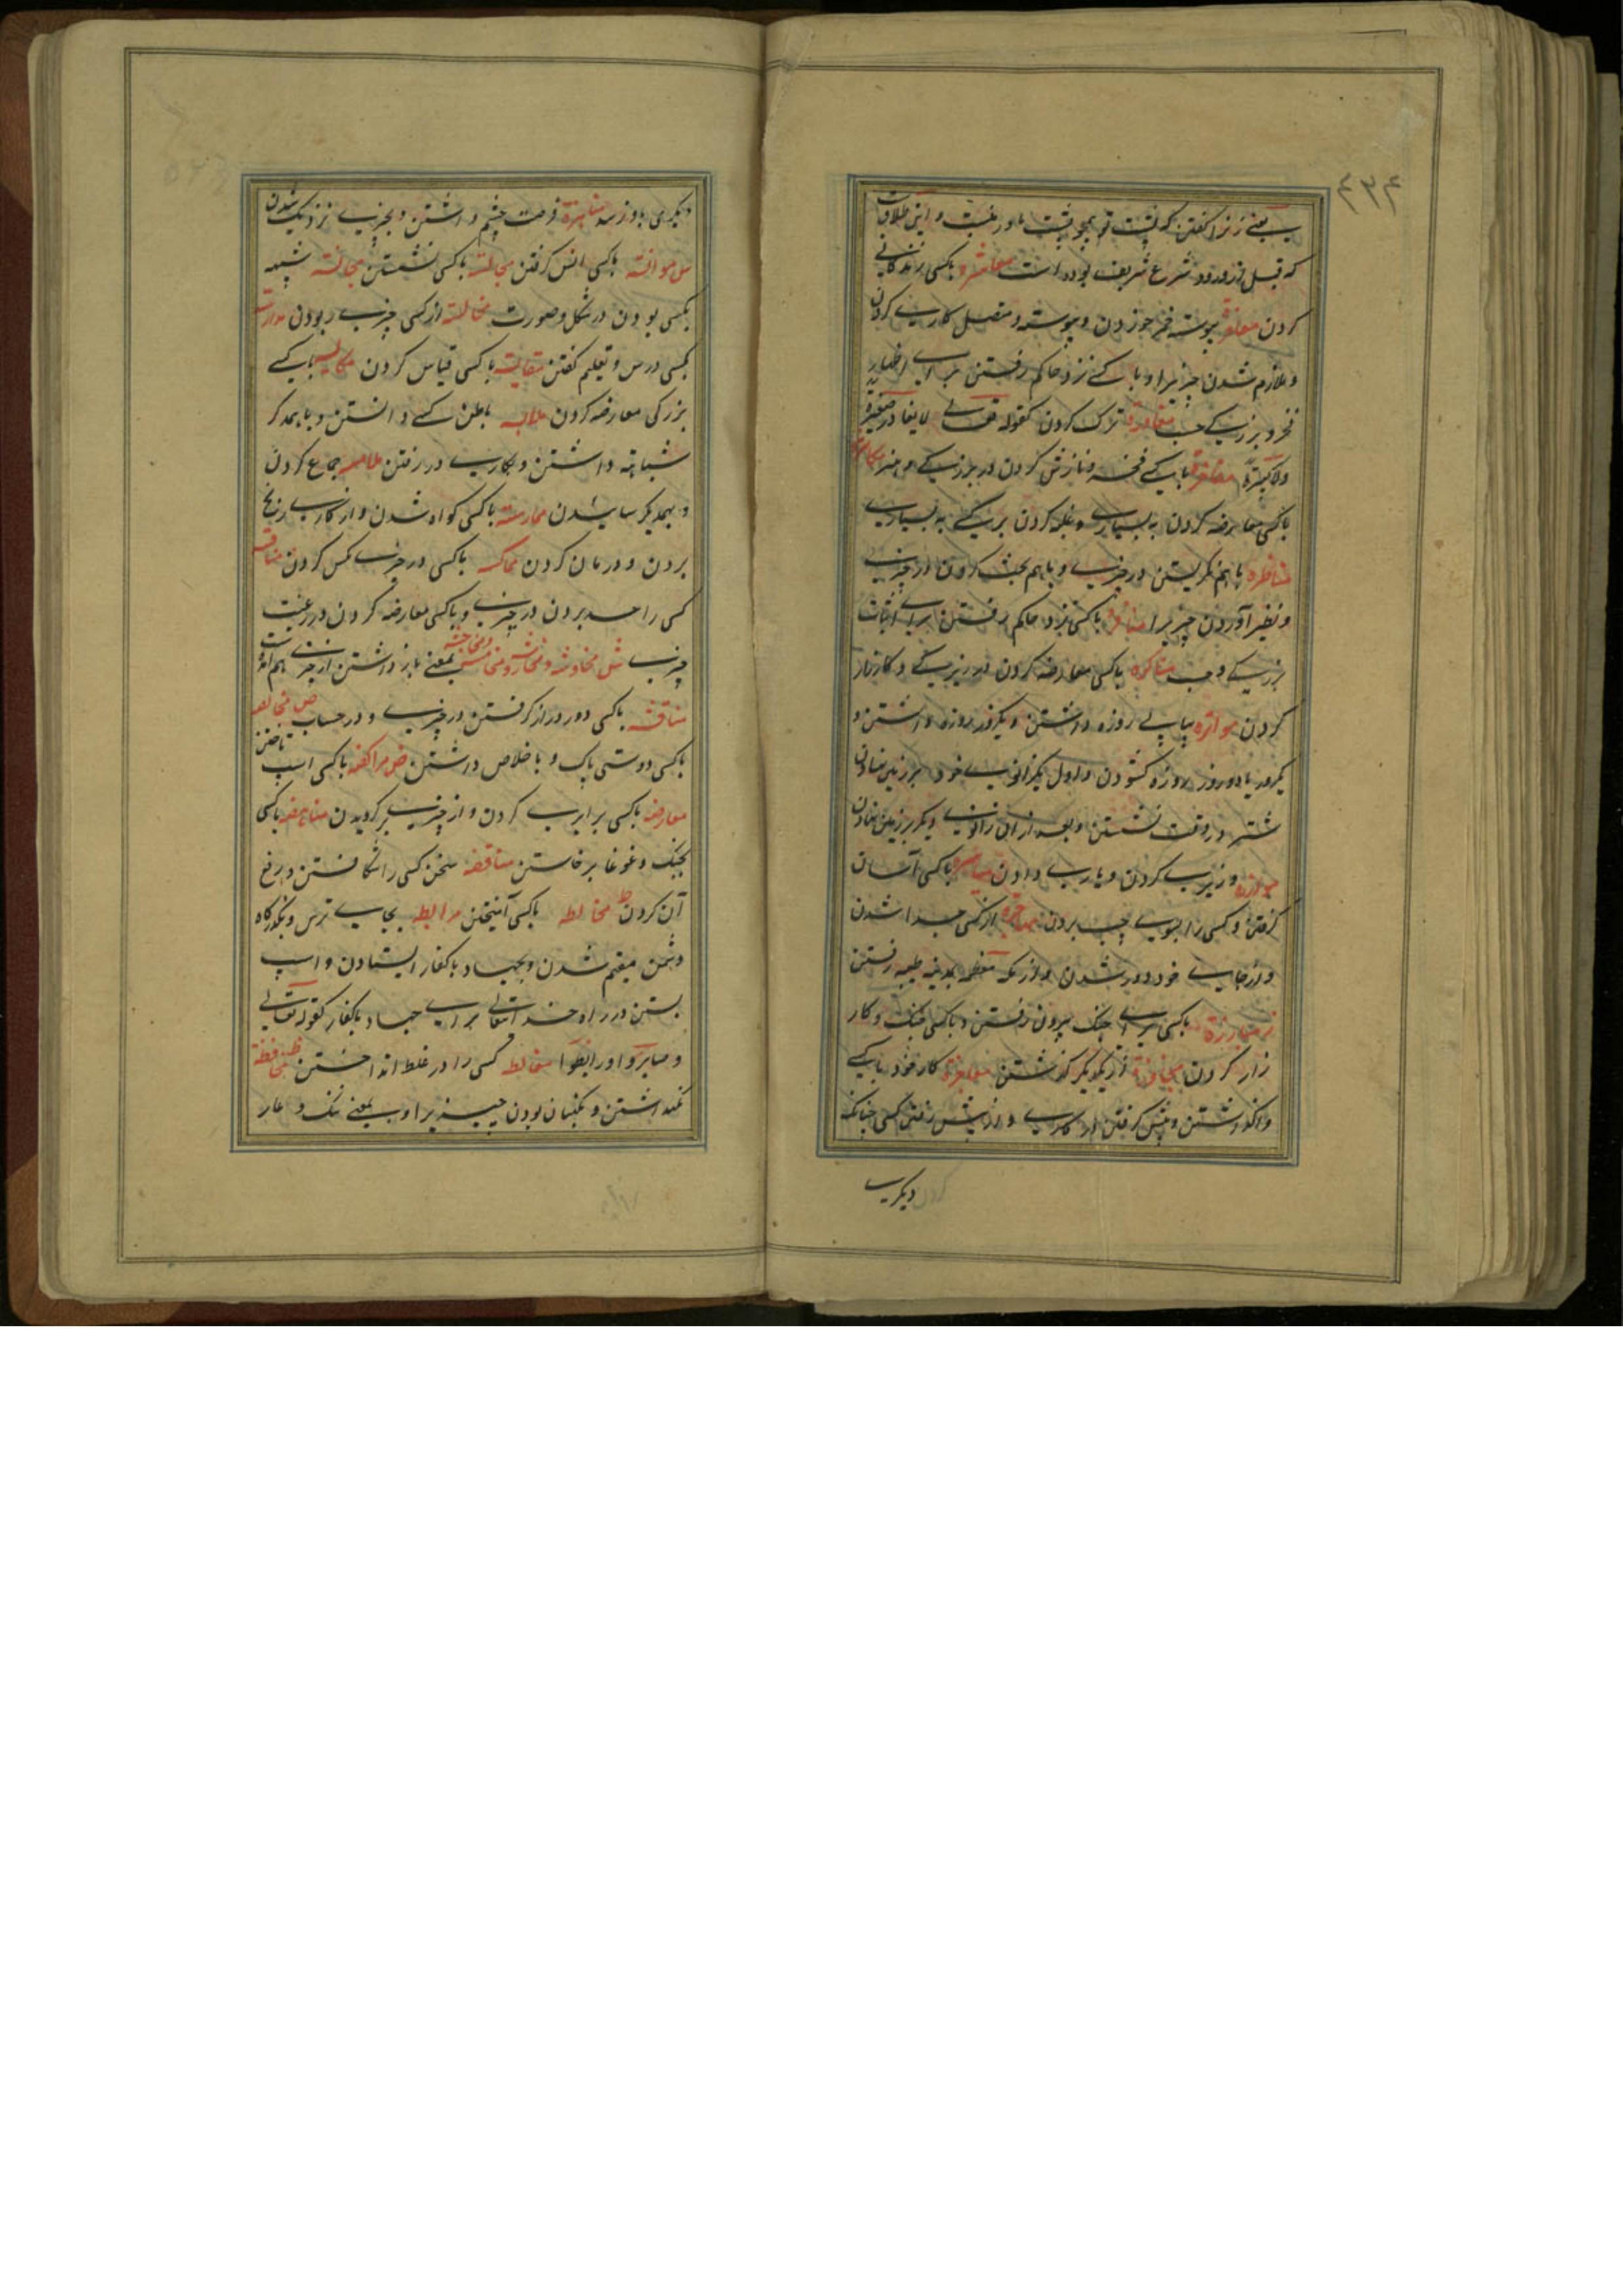 ۴۳۴
یعنے زنرا گفتن که پشت تو همچو پشت مادر منست و این طلاق
که قبل از ورود شرع شریف بوده است معاشره باکسی زندگانی
کردن معاقره پیوسته خمر خوردن و پیوسته و متصل کاریے کردن
و ملازم شدن چیزیرا و باکسے نزد حاکم رفتن براے اظهار
فخر و بزرگے حسب مغادرة ترک کردن کقوله تعالی لا یغادر صغیرة
ولا کبیرة مفاخرة باکسے فخر و نازش کردن در بزرگے و هنر مکاثرة
باکسی معارضه کردن به بسیاری و غلبه کردن بر یکے به بسیاریے
مناظره باهم نگریستن در چیزیے و باهم بحث کردن در چیزیے
و نظیر آوردن چیزیرا منافره باکسی نزد حاکم رفتن براے اثبات
بزرگے و حسب مناکره باکسی معارضه کردن در زیرکے و کارزار
کردن مواتره پیاپے روزه داشتن و یکروز روزه داشتن و
یکروز یا دو روز روزه کشودن و اول یکزانوے خود بر زمین نهادن
شتر در وقت نشستن و بعد از ان زانوے دیگر بر زمین نهادن
موازره وزیرے کردن و یارے دادن میاسره باکسی آسان
گرفتن و کسی را بسوے چپ بردن مهاجره از کسی جدا شدن
و از جاے خود دور شدن و از مکه معظمه بمدینه طیبه رفتن
ز مبارزة باکسی براے جنگ بیرون رفتن و باکسی جنگ و کار
زار کردن مجاوزة از یکدیگر گذشتن معاجزة کار خود باکسے
واگذاشتن و پیش گرفتن در کاریے و از پیش رفتن کسی چنانکه
دیگریے
دیگری باو نرسد مناهزة فرصت چشم داشتن و بچیزے نزدیک شدن
س موانسة باکسی انس گرفتن مجالسة باکسی نشستن مجانسة شبیه
بکسی بودن در شکل و صورت مخالسة از کسی چیزے ربودن مدارسة
بکسی درس و تعلیم گفتن مقایسة باکسی قیاس کردن باکسے
بزرگی معارضه کردن ملابسه باطن کسے دانستن و باهمدگر
شباهته داشتن و بکاریے در رفتن ملامسه جماع کردن
و بهمدیگر سائیدن ممارسة باکسی کواه شدن و از کاریے رنج
بردن و درمان کردن مماکسه باکسی در چیزے مکس کردن منافسه
کسی را حسد بردن در چیزے و باکسی معارضه کردن در رغبت
چیزے ش بمعنے باز داشتن از چیزے
مناقشه باکسی دور دراز گرفتن در چیزے و در حساب ص مخالصه
باکسی دوستی پاک و با خلاص داشتن ض مراکضه باکسی اسب تاختن
معارضه باکسی برابرے کردن و از چیزے برگردیدن مناهضه باکسی
بجنگ و غوغا برخاستن مناقضه سخن کسی را شکافتن و رفع
آن کردن ط مخالطه باکسی آمیختن مرابطه بجاے ترس و بگذرگاه
دشمن مقیم شدن و بجهاد باکفار ایستادن و اسب
بستن در راه خدا تعالی براے جهاد باکفار کقوله تعالی
و صابروا و رابطوا مغالطه کسی را در غلط انداختن ظ محافظة
نگهداشتن و نگهبان بودن چیزیرا و بمعنے ننگ و عار